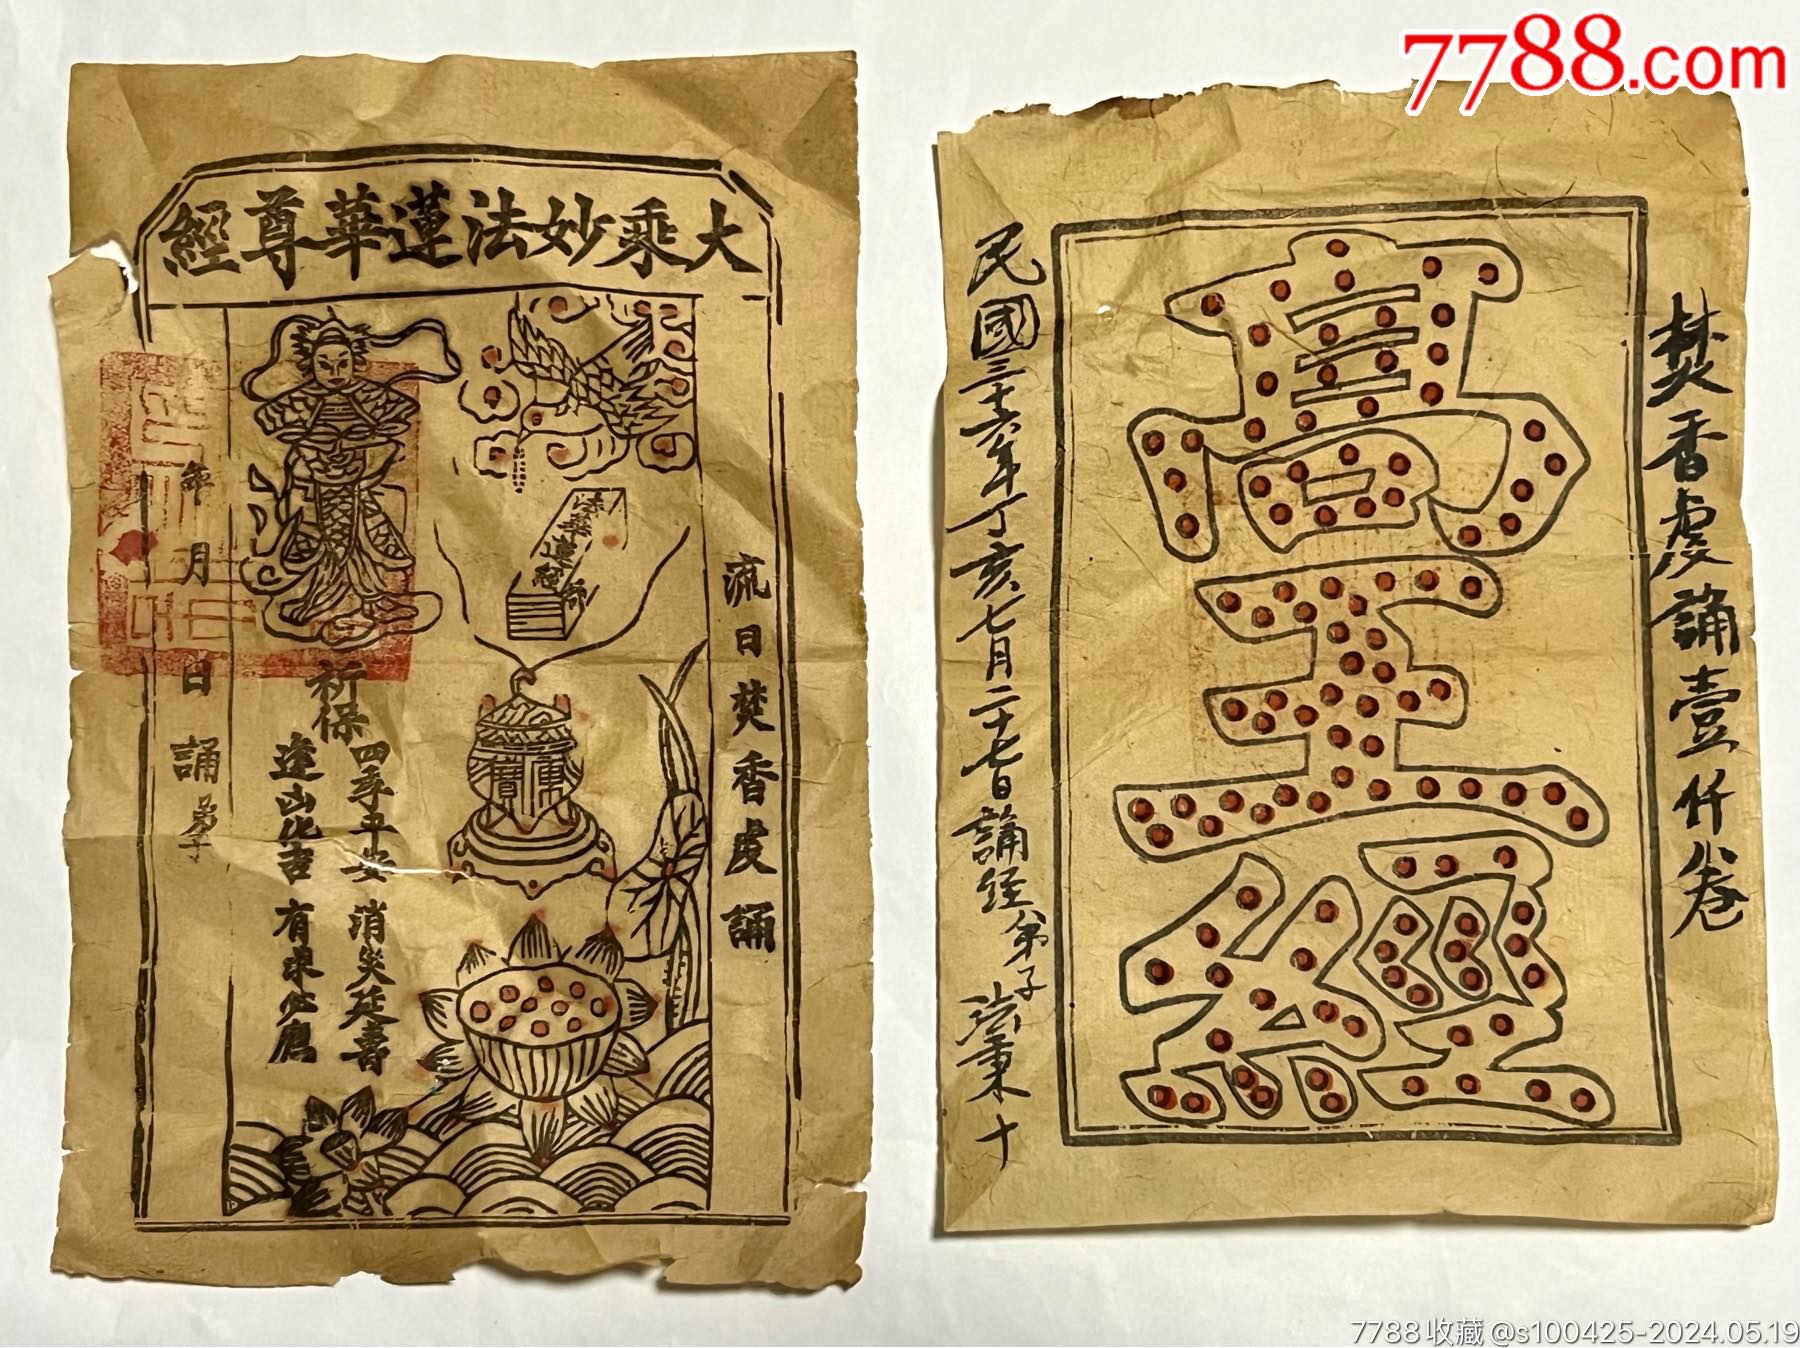 7788.com
大乘妙法蓮華尊經
流日焚香虔誦
法華蓮經
祈保
四季平安 消災延壽
逢凶化吉 有求必應
年 月 日 誦弟子
焚香虔誦壹仟卷
高王經
民國三十六年丁亥七月二十七日誦经弟子
7788收藏 @s100425-2024.05.19